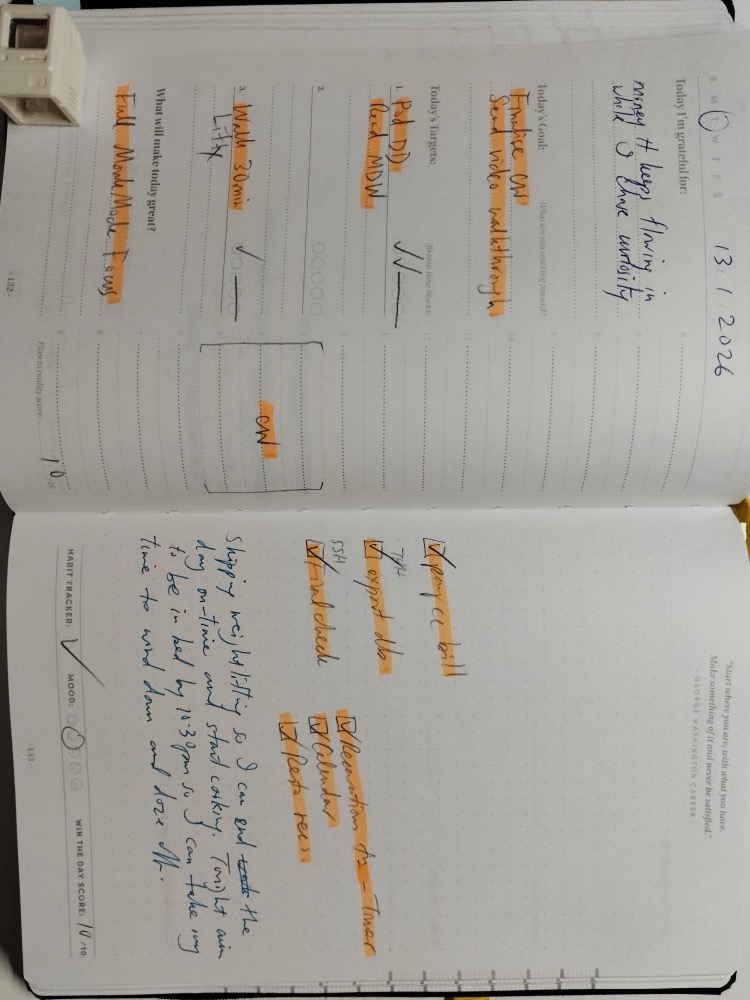 S M T W T F S 13.1.2026
Today I'm grateful for:
money. It keeps flowing in
while I have curiosity
Today's Goal: What are you working toward?
Finalise CW
Send video walkthrough
Today's Targets: 30-min time blocks:
1. Pod DD
Read MDW
2.
3. Walk 30min
Lift
What will make today great?
Full Monk Mode Focus
· 132 ·
6
7
8
9
10
11
12
1
2
3
4
CW
5
6
7
8
9
Plan to reality score: 10 /10
"Start where you are, with what you have.
Make something of it and never be satisfied."
- GEORGE WASHINGTON CARVER -
pay cc bill
TYH
export db
SSH
Final check
Calendar
Resto recs
Skipping weightlifting so I can end the
day on-time and start cooking. Tonight aim
to be in bed by 10:30pm so I can take my
time to wind down and doze off.
HABIT TRACKER: MOOD: WIN THE DAY SCORE: 10 /10
· 133 ·